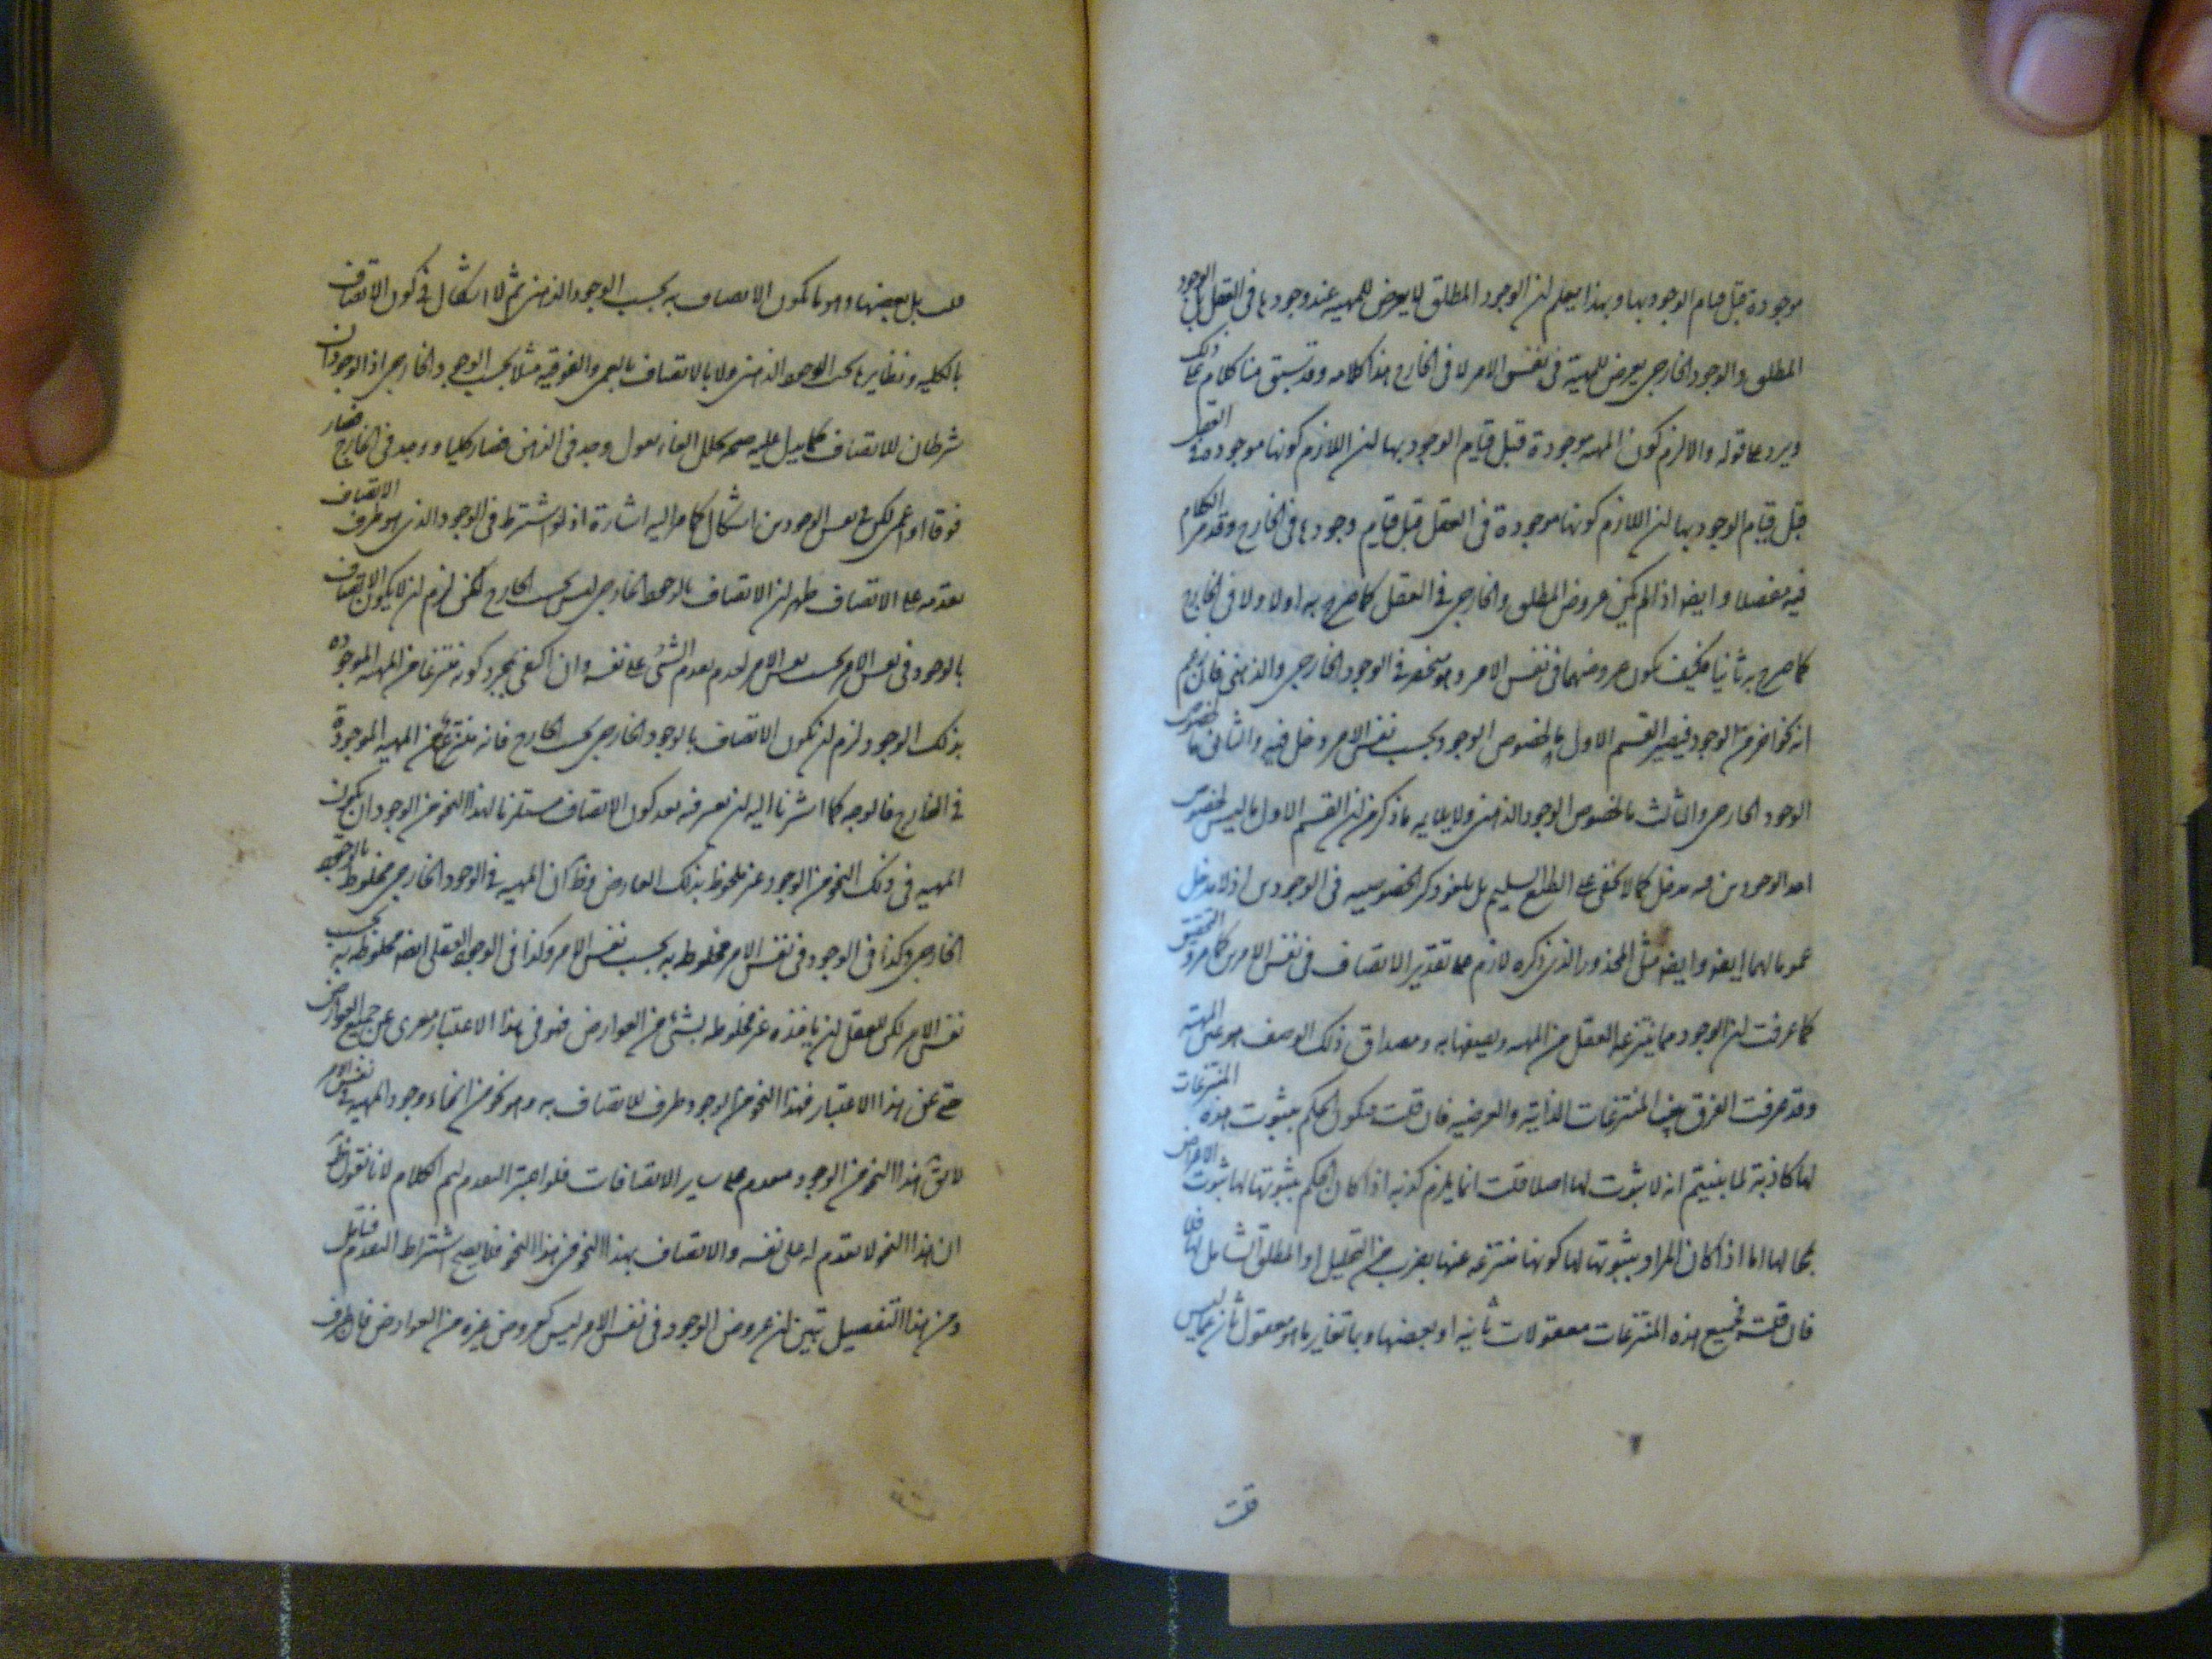 موجودة قبل قيام الوجود بها وبهذا يعلم ان الوجود المطلق لا يعرض للمهية عند وجودها في العقل بل الوجود
المطلق والوجود الخارجي يعرض للمهية في نفس الامر لا في الخارج هذا كلامه وقد سبق منا كلام على ذلك
ويرد على قوله والا لزم كون المهية موجودة قبل قيام الوجود بها ان اللازم كونها موجودة في العقل
قبل قيام الوجود بها ان اللازم كونها موجودة في العقل قبل قيام وجودها في الخارج وقد مر الكلام
فيه مفصلا وايضا اذا لم يكن عروض المطلق والخارجي في العقل كما صرح به اولا ولا في الخارج
كما صرح به ثانيا فكيف يكون عروضهما في نفس الامر وهو منحصر في الوجود الخارجي والذهني فان زعم
انه نحو اخر من الوجود فيصير القسم الاول ما لخصوص الوجود بحسب نفس الامر دخل فيه والثاني ما لخصوص
الوجود الخارجي والثالث ما لخصوص الوجود الذهني ولا يلايمه ما ذكر من ان القسم الاول ما ليس لخصوص
احد الوجودين فيه مدخل كما لا يخفى على الطبع السليم بل يلغو ذكر الخصوصية في الوجودين اذ لا مدخل
لعمومهما ايضا وايضا مثل المحذور الذي ذكره لازم على تقدير الاتصاف في نفس الامر كما مر والتحقيق
كما عرفت ان الوجود مما ينتزعه العقل من المهية ويصفها به ومصداق ذلك الوصف هو عين المهية
وقد عرفت الفرق بين المنتزعات الذاتية والعرضية فان قلت فيكون الحكم بثبوت هذه المنتزعات
لها كاذبة لما بينتم انه لا ثبوت لها اصلا قلت انما يلزم كذبه اذا كان الحكم بثبوتها لها ثبوت الاعراض
لمحالها اما اذا كان المراد بثبوتها لها كونها منتزعة عنها بضرب من التحليل او المطلق الشامل لها فلا
فان قلت فجميع هذه المنتزعات معقولات ثانية او بعضها وبم تغاير ما هو معقول ثان عما ليس
قلت
قلت بل بعضها وهو ما يكون الاتصاف به بحسب الوجود الذهني ثم لا اشكال في كون الاتصاف
بالكلية ونظايرها بحسب الوجود الذهني ولا بالاتصاف بالعمى والفوقية مثلا بحسب الوجود الخارجي اذ الوجودان
شرطان للاتصاف كما يدل عليه صحة تخلل الفاء يقول وجد في الذهن فصار كليا ووجد في الخارج فصار
فوقا او اعمى لكن في نفس الوجودين اشكال كما مر اليه اشارة اذ لو اشترط في الوجود الذي هو ظرف الاتصاف
تقدمه على الاتصاف ظهر ان الاتصاف بالوجود الخارجي ليس بحسب الخارج لكن لزم ان لا يكون الاتصاف
بالوجود في نفس الامر بحسب نفس الامر لعدم تقدم الشيء على نفسه وان اكتفي بمجرد كونه منتزعا من المهية الموجودة
بذلك الوجود لزم ان يكون الاتصاف بالوجود الخارجي بحسب الخارج فانه منتزع عن المهية الموجودة
في الخارج فالوجه كما اشرنا اليه ان نعرفه بعد كون الاتصاف مستلزما لهذا النحو من الوجود ان يكون
المهية في ذلك النحو من الوجود غير مخلوط بذلك العارض وظ ان المهية في الوجود الخارجي مخلوط بالوجود
الخارجي وكذا في الوجود في نفس الامر مخلوطة به بحسب نفس الامر وكذا في الوجود العقلي ايضا مخلوطة به بحسب
نفس الامر لكن للعقل ان ياخذه غير مخلوطة بشيء من العوارض فهو في هذا الاعتبار معرى عن جميع العوارض
حتى عن هذا الاعتبار فهذا النحو من الوجود ظرف للاتصاف به وهو نحو من انحاء وجود المهية في نفس الامر
لا يق هذا النحو من الوجود متقدم على ساير الاتصافات فلو اعتبر التقدم لتم الكلام لانا نقول ظ
ان هذا النحو لا تقدم له على نفسه والاتصاف بهذا النحو في هذا النحو فلا يصح اشتراط التقدم فتامل
ومن هذا التفصيل تبين ان عروض الوجود في نفس الامر ليس كعروض غيره من العوارض فان ظرف